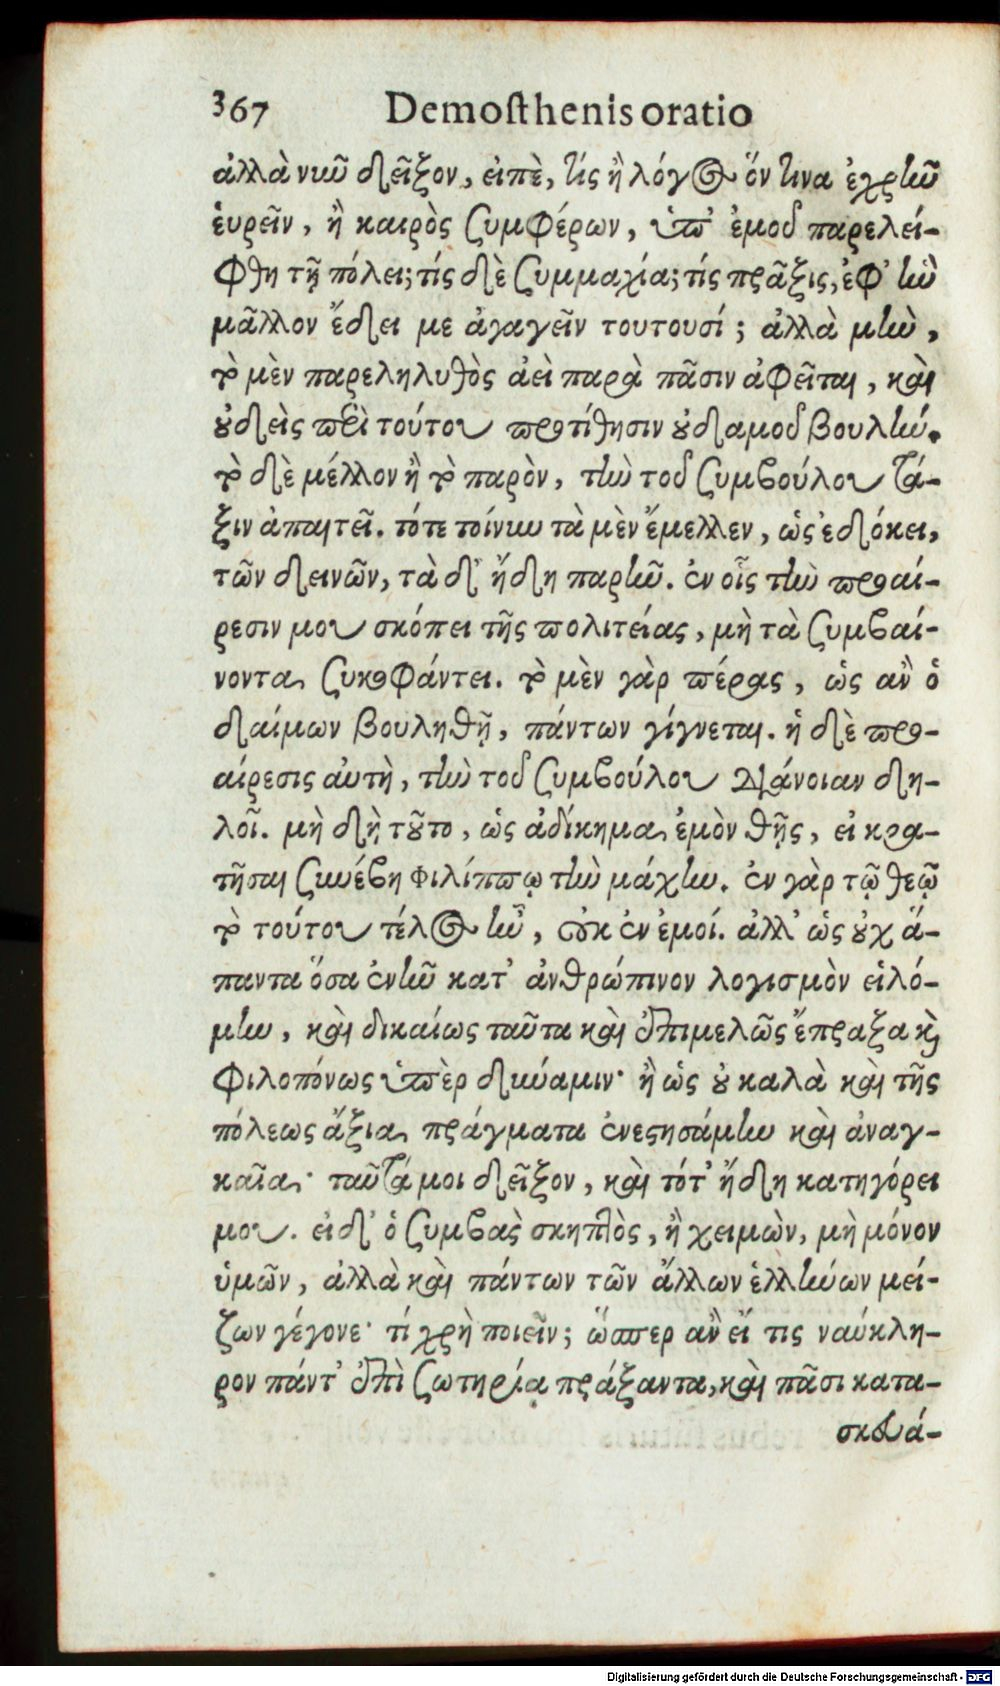 367 Demosthenis oratio
ἀλλὰ νῦν δεῖξον, εἰπὲ, τίς ἢ λόγος ὅν τινα ἐχρῆν
ἑυρεῖν, ἢ καιρὸς συμφέρων, ὑπ' ἐμοῦ παρελεί-
φθη τῇ πόλει; τίς δὲ συμμαχία; τίς πρᾶξις, ἐφ' ἣν
μᾶλλον ἔδει με ἀγαγεῖν τουτουσί; ἀλλὰ μὴν,
τὸ μὲν παρεληλυθὸς ἀεὶ παρὰ πᾶσιν ἀφεῖται, καὶ
οὐδεὶς περὶ τούτου προτίθησιν οὐδαμοῦ βουλήν.
τὸ δὲ μέλλον ἢ τὸ παρὸν, τὴν τοῦ συμβούλου τά-
ξιν ἀπαιτεῖ. τότε τοίνυν τὰ μὲν ἔμελλεν, ὡς ἐδόκει,
τῶν δεινῶν, τὰ δ' ἤδη παρῆν. ἐν οἷς τὴν προαί-
ρεσιν μου σκόπει τῆς πολιτείας, μὴ τὰ συμβαί-
νοντα συκοφάντει. τὸ μὲν γὰρ πέρας, ὡς ἂν ὁ
δαίμων βουληθῇ, πάντων γίγνεται. ἡ δὲ προ-
αίρεσις ἀυτὴ, τὴν τοῦ συμβούλου διάνοιαν δη-
λοῖ. μὴ δὴ τοῦτο, ὡς ἀδίκημα ἐμὸν θῇς, εἰ κρα-
τῆσαι συνέβη Φιλίππῳ τὴν μάχην. ἐν γὰρ τῷ θεῷ
τὸ τούτου τέλος ἦν, οὐκ ἐν ἐμοί. ἀλλ' ὡς οὐχ ἅ-
παντα ὅσα ἐνῆν κατ' ἀνθρώπινον λογισμὸν εἱλό-
μην, καὶ δικαίως ταῦτα καὶ ἐπιμελῶς ἔπραξα καὶ
φιλοπόνως ὑπὲρ δύναμιν· ἢ ὡς οὐ καλὰ καὶ τῆς
πόλεως ἄξια πράγματα ἐνεστησάμην καὶ ἀναγ-
καῖα· ταῦτά μοι δεῖξον, καὶ τότ' ἤδη κατηγόρει
μου. εἰ δ' ὁ συμβὰς σκηπτὸς, ἢ χειμὼν, μὴ μόνον
ὑμῶν, ἀλλὰ καὶ πάντων τῶν ἄλλων ἑλλήνων μεί-
ζων γέγονε· τί χρὴ ποιεῖν; ὥσπερ ἂν εἴ τις ναύκλη-
ρον πάντ' ἐπὶ σωτηρίᾳ πράξαντα, καὶ πᾶσι κατα-
σκευά-
Digitalisierung gefördert durch die Deutsche Forschungsgemeinschaft - DFG